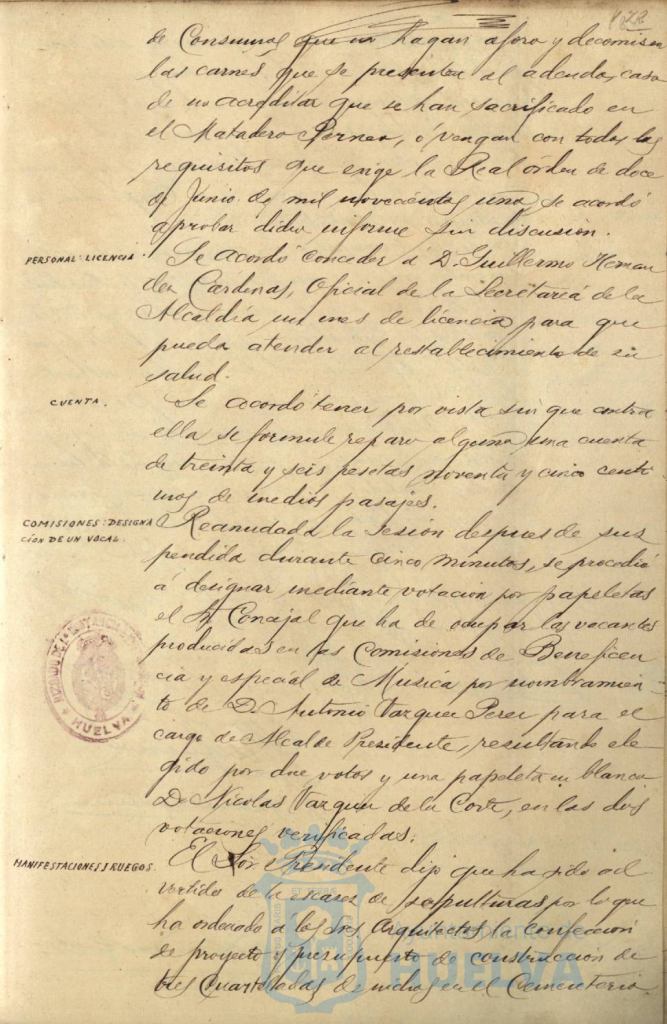 122
de Consumos que no hagan aforo y decomisen
las carnes que se presenten al adeudo, caso
de no acreditar que se han sacrificado en
el Matadero Pernea, ó vengan con todos los
requisitos que exige la Real órden de doce
de Junio de mil novecientos uno, se acordó
aprobar dicho informe sin discusión.
PERSONAL: LICENCIA
Se acordó conceder á D. Guillermo Hernan
dez Cardenas, Oficial de la Secretaría de la
Alcaldía un mes de licencia para que
pueda atender al restablecimiento de su
salud.
CUENTA.
Se acordó tener por vista sin que contra
ella se formule reparo alguno una cuenta
de treinta y seis pesetas noventa y cinco centi
mos de medios pasajes.
COMISIONES: DESIGNA
CIÓN DE UN VOCAL.
Reanudada la sesión despues de sus
pendida durante cinco minutos, se procedió
á designar mediante votación por papeletas
el Sr Concejal que ha de ocupar las vacantes
producidas en las Comisiones de Beneficen
cia y especial de Musica por nombramien
to de D. Antonio Vazquez Perez para el
cargo de Alcalde Presidente, resultando ele
gido por doce votos y una papeleta en blanco
D. Nicolas Vazquez de la Corte, en las dos
votaciones verificadas.
HUELVA
MANIFESTACIONES Y RUEGOS.
El Sor Presidente dijo que ha sido ad
vertido de la escases de sepulturas por lo que
ha ordenado a los Sres Arquitectos la confección
de proyecto y presupuesto de construcción de
tres cuarteladas de nichos en el Cementerio
Ayuntamiento de
HUELVA